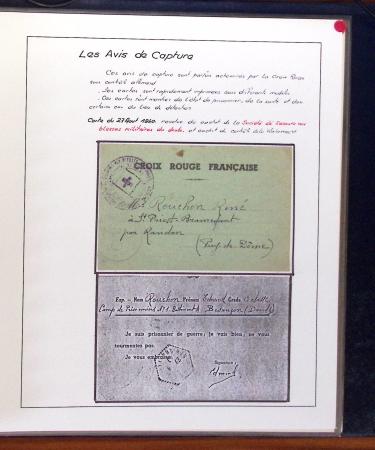 Les Avis de Capture
Ces avis de capture sont parfois acheminés par la Croix Rouge
sous contrôle allemand
. Les cartes sont rapidement imprimées sous différents modèles
. Ces cartes sont munies de l'état de prisonnier, de la santé et d'un
certain du lieu de détention
Carte du 27 Août 1940 revêtue du cachet de la Société de Secours aux
blessés militaires du Doubs, et cachet de contrôle
CROIX ROUGE FRANÇAISE
Rouchon René
à St Priest-Bramefant
par Randan
(Puy-de-Dôme)
Exp. - Nom Rouchon Prénom Edmond Grade
Camp de Prisonniers n° 1 Bâtiment Besançon (Doubs)
Je suis prisonnier de guerre; je vais bien; ne vous
tourmentez pas.
Je vous embrasse.
Signature:
Edmond